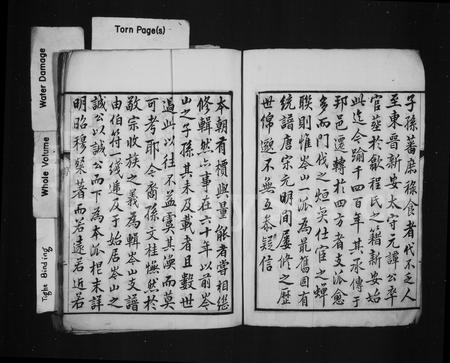 Torn Page(s)
Water Damage
Whole Volume
Tight Binding
子孫蕃庶祿食者代不乏人
至東晉新安太守元譚公卒
官葬於歙程氏之籍新安始
此迄今踰千四百年其承傳于
邦邑遷轉於四方者支派愈
多而門伐之烜奕仕宦之蟬
聯則惟岑山一派為最舊固有
統譜唐宋元明間屢修之歷
世綿邈不無互叅疑信
本朝有慣與量能者嘗相繼
修輯然亦事在六十年以前岑
山之子孫其未及載者且數世
過此以往不益虞其渙而莫
可考耶今裔孫文桂慨然於
敬宗收族之義為輯岑山支譜
由伯符一綫遞及于始居岑山之
誠公以誠公而下為本派柢末詳
明昭穆槩著而若遠若近若